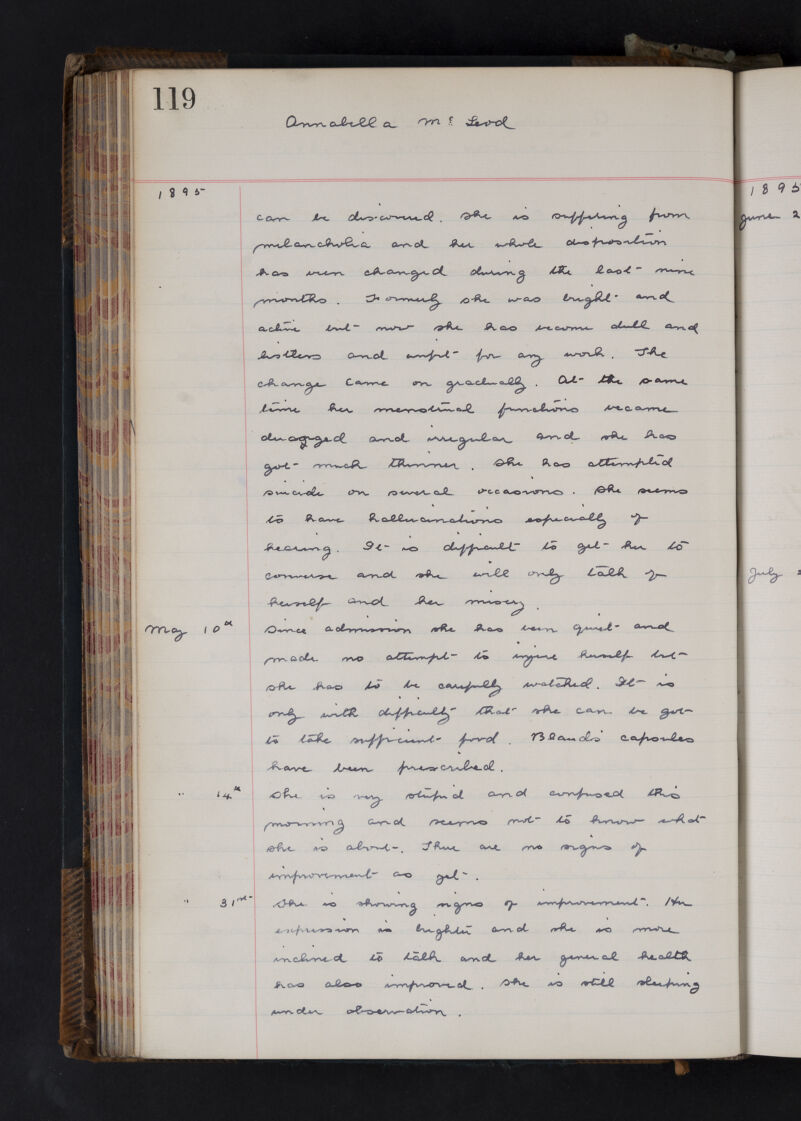 119
Annabella Mc Leod
1895
can be discovered. She is suffering from
melancholia and her whole disposition
has been changed during the last nine
months. Formerly she was bright and
active but now she has become dull and
listless and unfit for any work. The
change came on gradually. At the same
time her menstrual functions became
deranged and irregular and she has
got much thinner. She has attempted
suicide on several occasions. She seems
to have hallucinations especially of
hearing. It is difficult to get her to
converse and she will only talk of
herself and her misery.
May 10th Since admission she has been quiet and
made no attempt to injure herself but
she has to be carefully watched. It is
only with difficulty that she can be got
to take sufficient food. Blaud's capsules
have been prescribed.
" 14th She is very stupid and confused this
morning and seems not to know what
she is about. There are no signs of
improvement as yet.
" 31st She is showing signs of improvement. Her
expression is brighter and she is more
inclined to talk and her general health
has also improved. She is still sleeping
under observation.
1895
June 2
July